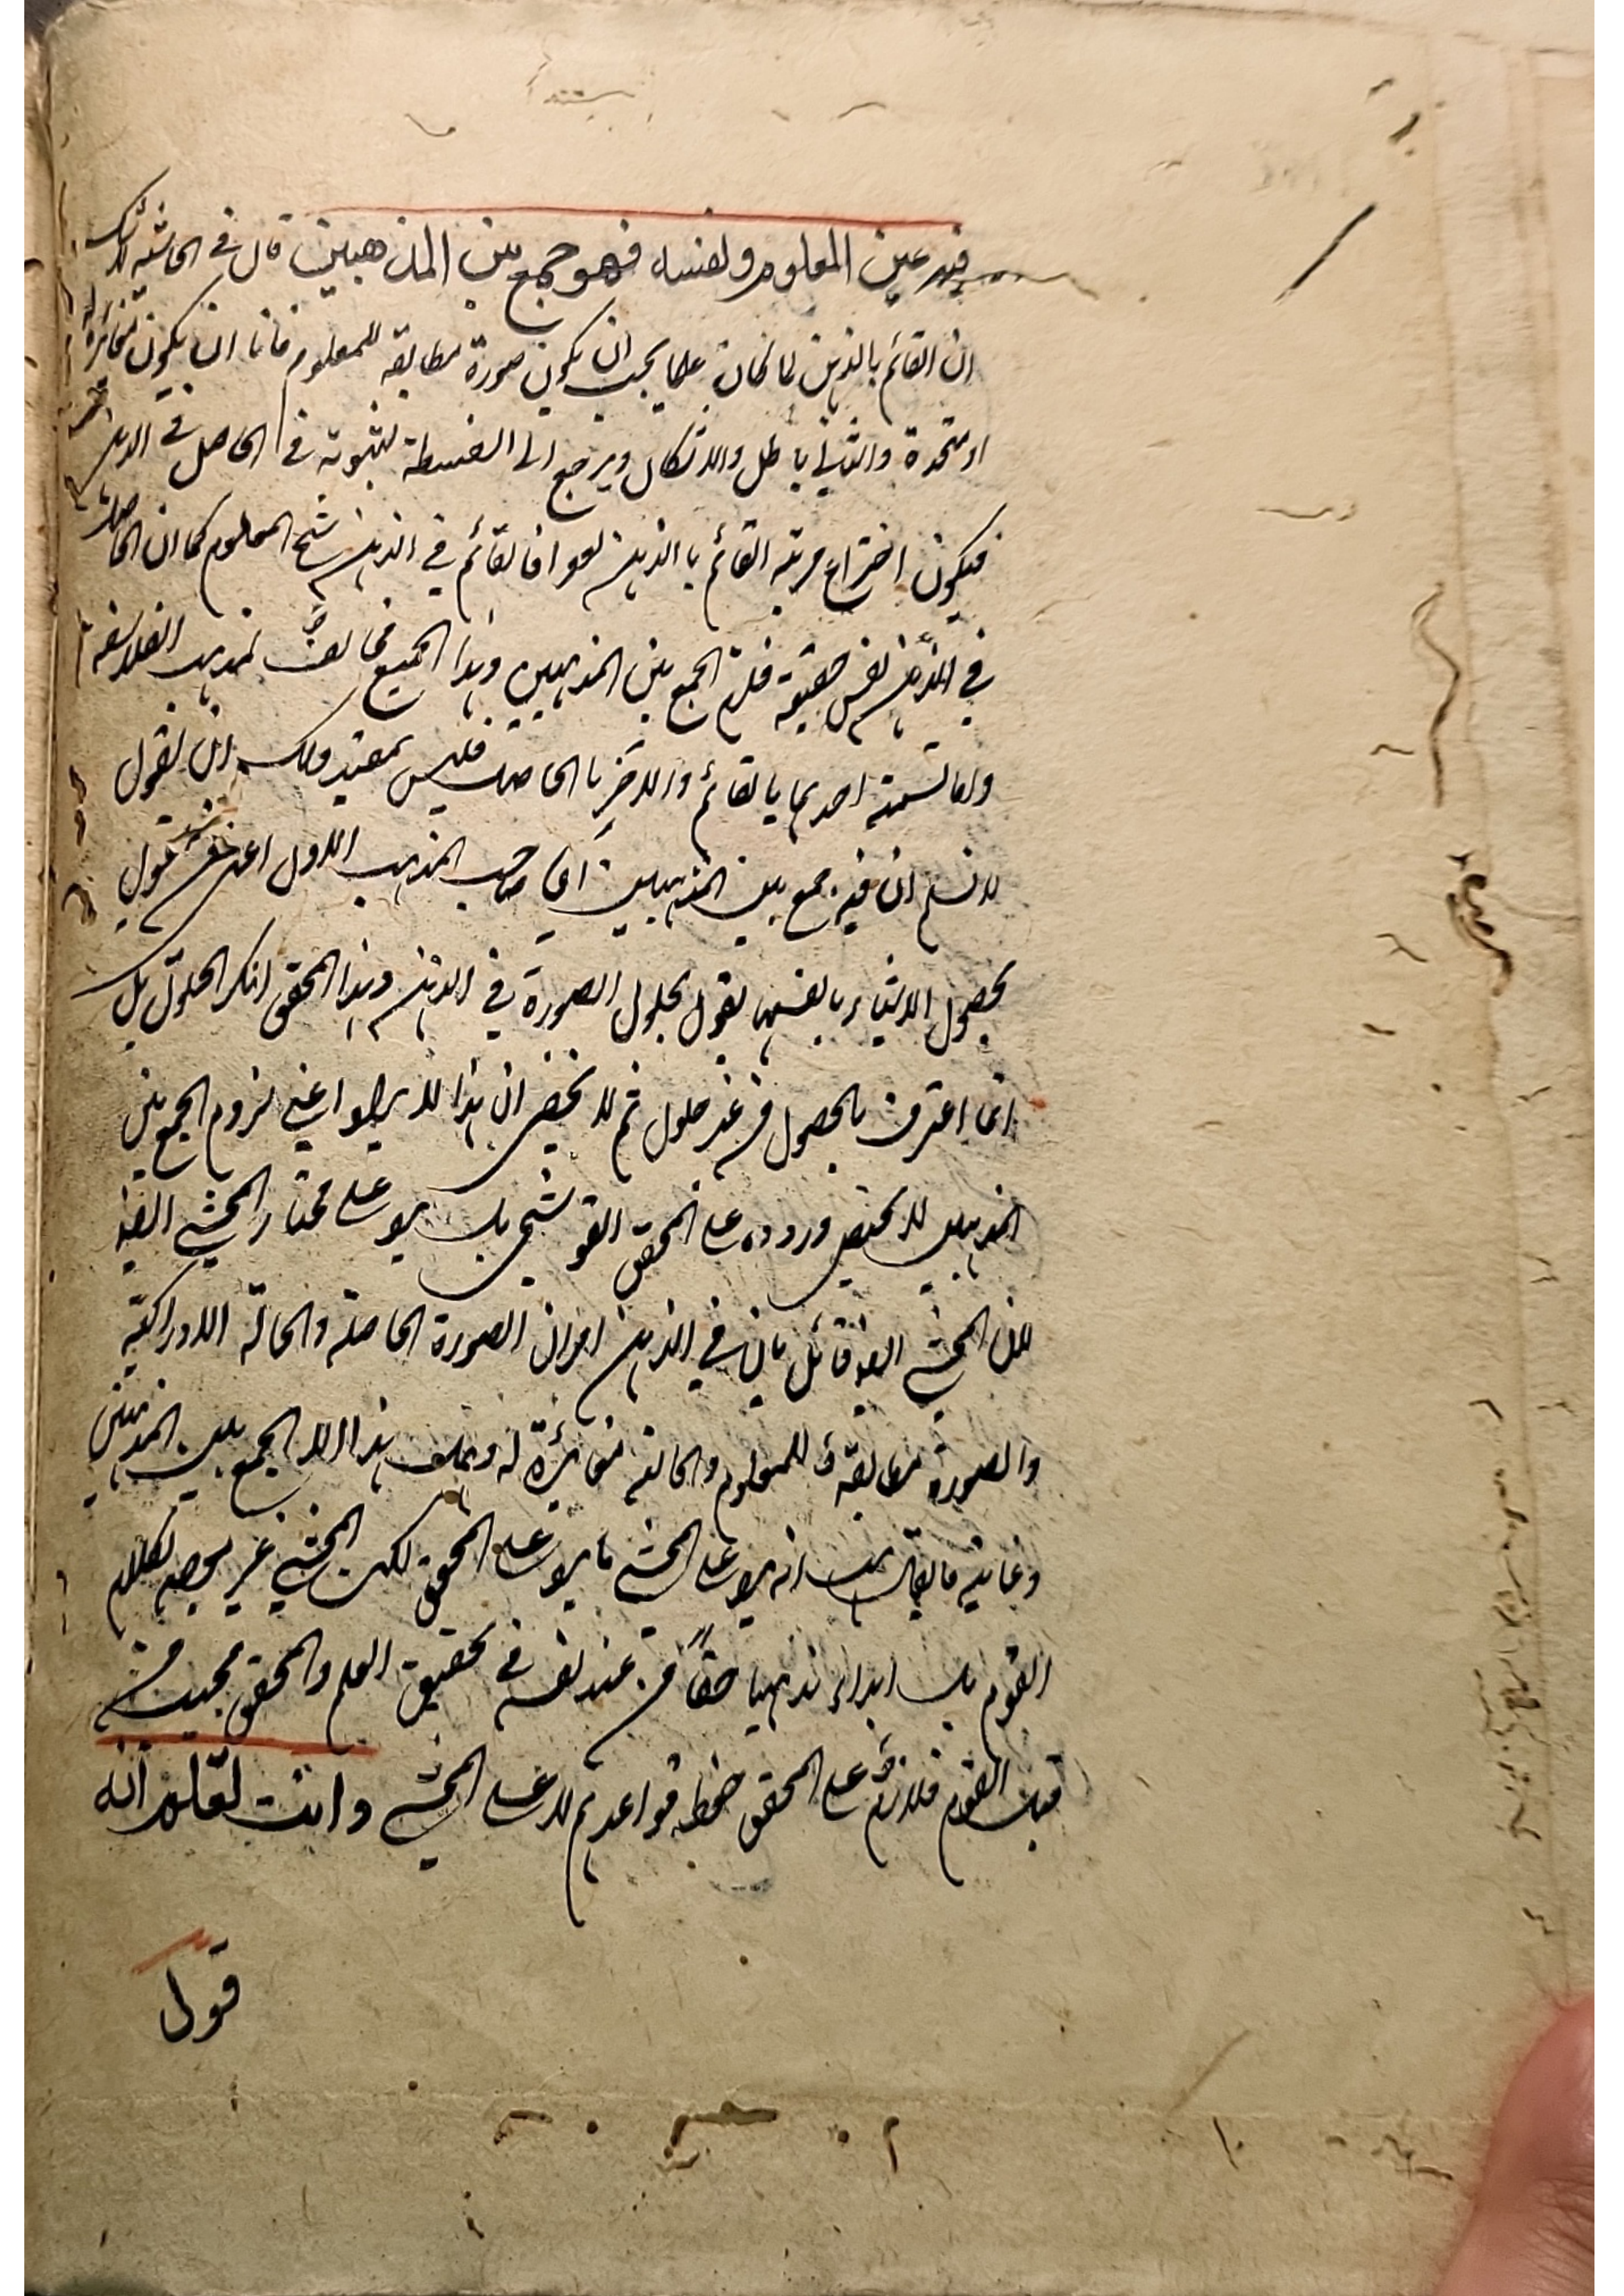 فيه عين المعلوم ونفسه فهو جمع بين المذهبين قال في الحاشية
ان القائم بالذهن لما كان علما يجب ان يكون صورة مطابقة للمعلوم فاما ان يكون مغائرة له
او متحدة والثاني باطل والاشكال ويرجع الى السفسطة لثبوته في الحاصل في الذهن
فيكون اختراع مرتبة القائم بالذهن لغوا فالقائم في الذهن شبح المعلوم كما ان الحاصل
في الذهن نفس حقيقته فلزم الجمع بين المذهبين وهذا الجميع مخالف لمذهب الفلاسفة
واما تسمية احدهما بالقائم والاخر بالحاصل فليس بمفيد ولك ان تقول
لا نسلم ان فيه جمع بين المذهبين اما صاحب المذهب الاول اعنى من يقول
بحصول الاشياء بانفسها يقول بحلول الصورة في الذهن وهذا المحقق انكر الحلول بل
انما اعترف بالحصول من غير حلول ثم لا يخفى ان هذا الايراد اعني لزوم الجمع بين
المذهبين لا يختص وروده على المحقق القوشجي بل يرد على مختار المحشي ايضا
لان المحشي ايضا قائل بان في الذهن امران الصورة الحاصلة والحالة الادراكية
والصورة مطابقة للمعلوم والحالة مغائرة له وهل هذا الا الجمع بين المذهبين
وغاية ما يقال انه يرد على المحشي ما يرد على المحقق لكن المحشي غير موجه لكلام
القوم بل ابداء مذهبا حقا من عند نفسه في تحقيق العلم والمحقق مجيب من
قبل القوم فلازم على المحقق حفظ قواعدهم لا على المحشي وانت تعلم انه
قول